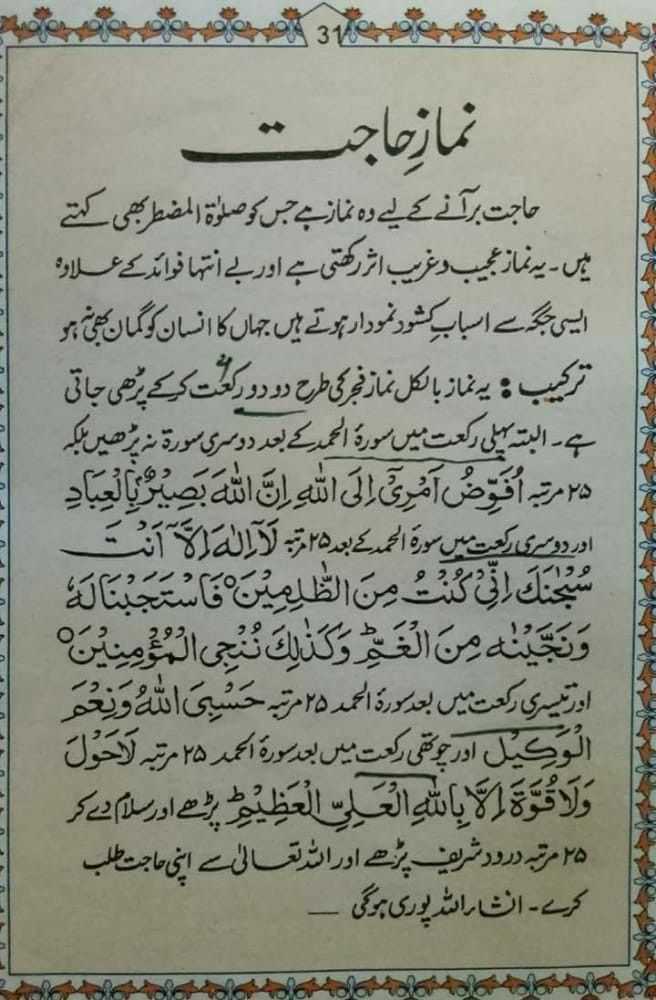 31
نمازِ حاجت
حاجت بر آنے کے لیے وہ نماز ہے جس کو صلوٰۃ المضطر بھی کہتے
ہیں۔ یہ نماز عجیب و غریب اثر رکھتی ہے اور بے انتہا فوائد کے علاوہ
ایسی جگہ سے اسبابِ کشود نمودار ہوتے ہیں جہاں کا انسان کو گمان بھی نہ ہو
ترکیب : یہ نماز بالکل نماز فجر کی طرح دو دو رکعت کر کے پڑھی جاتی
ہے۔ البتہ پہلی رکعت میں سورۃ الحمد کے بعد دوسری سورۃ نہ پڑھیں بلکہ
۲۵ مرتبہ اُفَوِّضُ اَمْرِیْٓ اِلَی اللّٰہِ اِنَّ اللّٰہَ بَصِیْرٌۢ بِالْعِبَادِ
اور دوسری رکعت میں سورۃ الحمد کے بعد ۲۵ مرتبہ لَآ اِلٰہَ اِلَّآ اَنْتَ
سُبْحٰنَکَ اِنِّیْ کُنْتُ مِنَ الظّٰلِمِیْنَ ° فَاسْتَجَبْنَا لَہٗ
وَنَجَّیْنٰہُ مِنَ الْغَمِّ ؕ وَکَذٰلِکَ نُنْجِی الْمُؤْمِنِیْنَ °
اور تیسری رکعت میں بعد سورۃ الحمد ۲۵ مرتبہ حَسْبِیَ اللّٰہُ وَنِعْمَ
الْوَکِیْل اور چوتھی رکعت میں بعد سورۃ الحمد ۲۵ مرتبہ لَاحَوْلَ
وَلَا قُوَّۃَ اِلَّا بِاللّٰہِ الْعَلِیِّ الْعَظِیْمِ ؕ پڑھے اور سلام دے کر
۲۵ مرتبہ درود شریف پڑھے اور اللہ تعالیٰ سے اپنی حاجت طلب
کرے۔ انشاء اللہ پوری ہوگی —